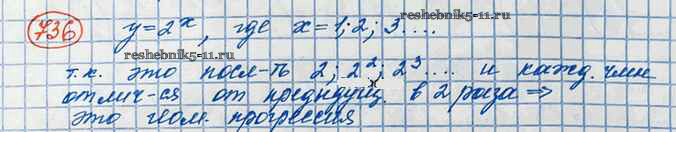 736 y=2ˣ, где x=1; 2; 3....
reshebnik5-11.ru
reshebnik5-11.ru
т.к. это посл-ть 2; 2²; 2³.... и кажд. член
отлич-ся от предыдущ. в 2 раза ⇒
это геом. прогрессия